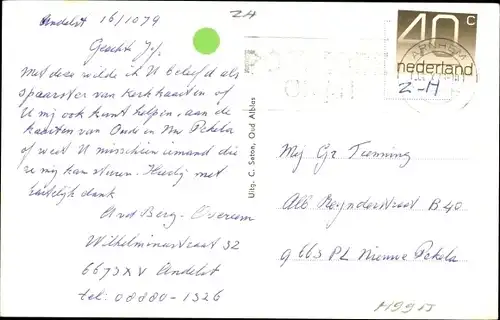 Andelst 16/10 79
24
Geacht Jef.
Met deze wilde ik U beleefd als
spaarster van kerkkaarten of
U mij ook kunt helpen, aan de
kaarten van Oude en Nw Pekela
of weet U misschien iemand die
ze mij kan sturen. Hartelijk met
hartelijk dank
Berg-Overeem
Wilhelminastraat 32
6673 XV Andelst
tel: 08880-1326
Uitg. C. Seton, Oud Alblas
40 c
nederland
ARNHEM
2-H
Mej Gr Tunning
Alb Reynderstraat B 40
9663 PL Nieuwe Pekela
H99